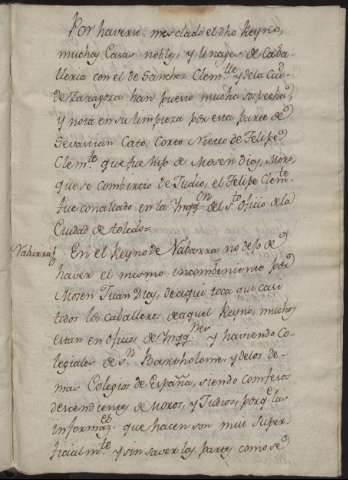 Por haverse mesclado el dho Reyno,
muchas Casas nobles, y Linages de Caba-
lleria con el de Sanchez Clem.te y de la Ciu.d
de Zaragoza han puesto mucha sospecha,
y nota en su limpieza por esta parte de
Sevastian Caro, Coxo Nieto de Felipe
Clem.te que fue hijo de Mosen Dios, Moro
que se combirtio de Judio, el Felipe Clem.te
fue conciliado en la Ynqq.on del S.to oficio de la
Ciudad de toledo=
Nabarra
En el Reyno de Nabarra no dejo de
haver el mismo incombeniente por
Mosen Juan Dios, de aqui toca que casi
todos los caballeros de aquel Reyno, muchos
estan en Oficios de Ynqq.nes y haviendo Co-
legiales de S.n Bartholome, y de los de-
mas Colegios de España, siendo comfesos
descendientes de Moros, y Judios, porq.e las
informaz.es que hacen son mui Super-
ficialm.te y sin saver las partes como se